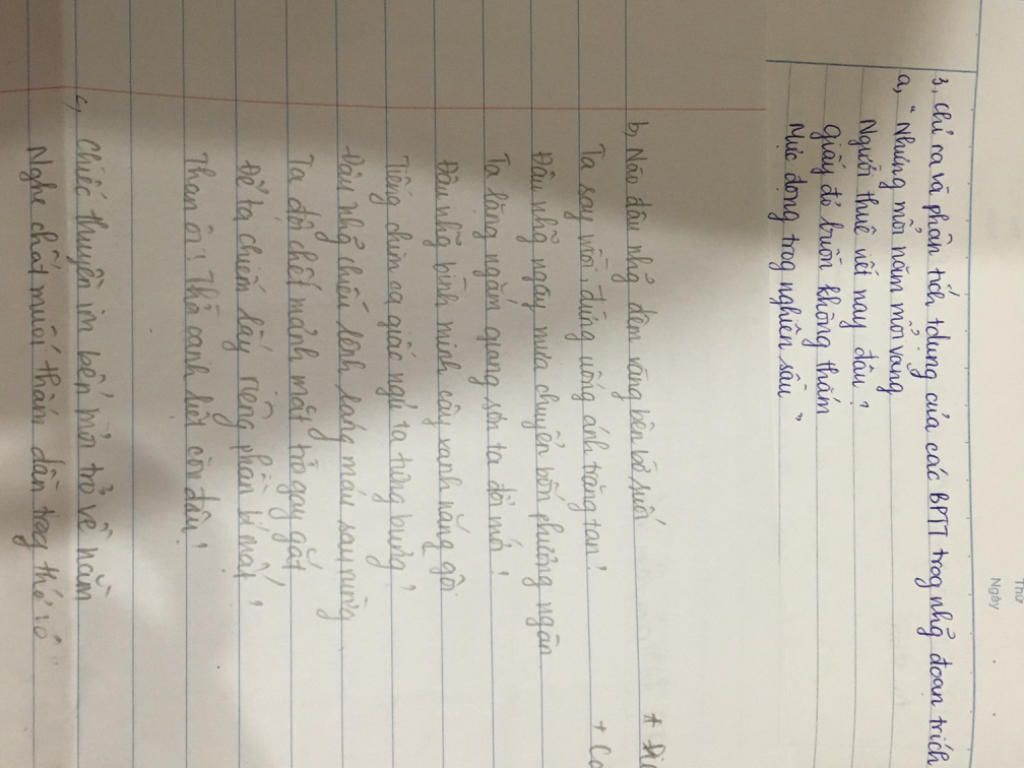 Thứ
Ngày
3, Chỉ ra và phân tích tdụng của các BPTT trog nhữ đoạn trích
a, "Nhưng mỗi năm mỗi vắng
Người thuê viết nay đâu?
Giấy đỏ buồn không thắm
Mực đọng trog nghiên sầu"
b, Nào đâu nhữ đêm vàng bên bờ suối
Ta say mồi đứng uống ánh trăng tan?
Đâu nhữ ngày mưa chuyển bốn phương ngàn
Ta lặng ngắm giang sơn ta đổi mới?
Đâu nhữ bình minh cây xanh nắng gội
Tiếng chim ca giấc ngủ ta tưng bừng?
Đâu nhữ chiều lênh láng máu sau rừng
Ta đợi chết mảnh mặt trời gay gắt
Để ta chiếm lấy riêng phần bí mật?
Than ôi! Thời oanh liệt còn đâu?
c, Chiếc thuyền im bến mỏi trở về nằm
Nghe chất muối thấm dần trog thớ vỏ